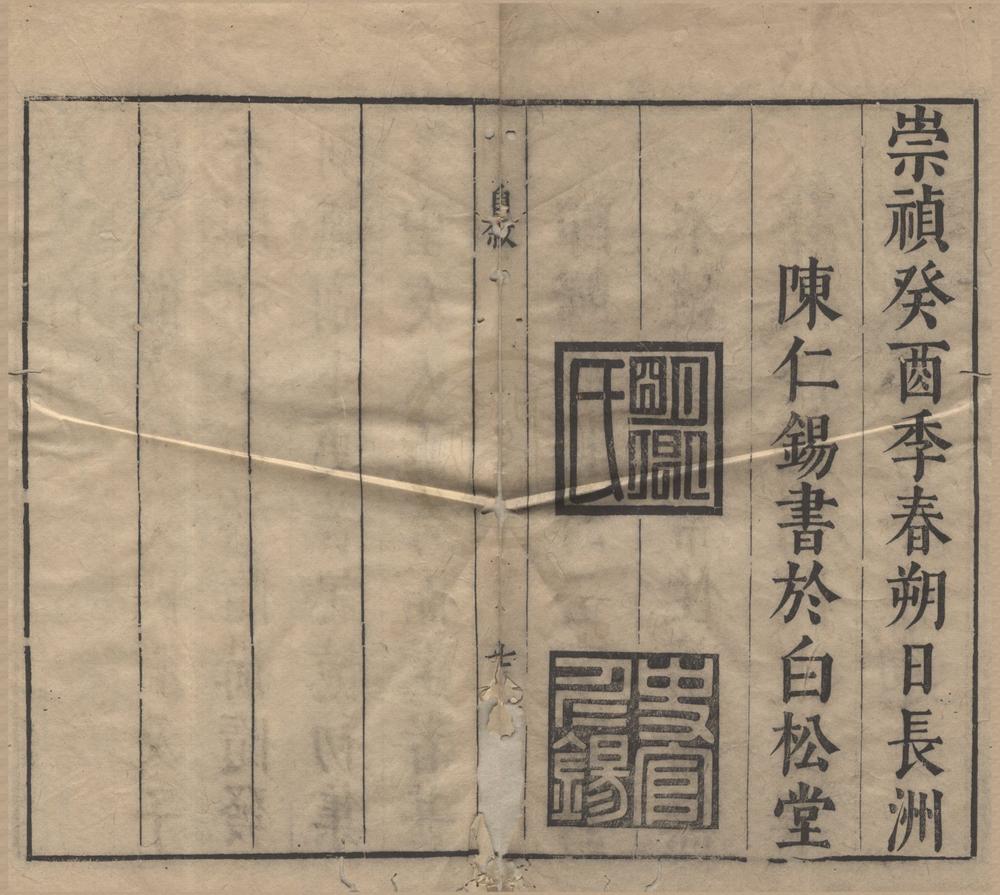 崇禎癸酉季春朔日長洲
陳仁錫書於白松堂
明卿氏
史官仁錫
自敘